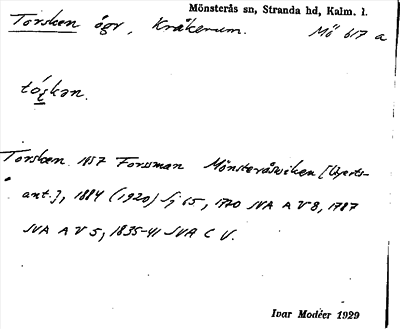 Mönsterås sn, Stranda hd, Kalm. l.
Torsken ögr, Kråkerum. Mö 617 a
Torsken 1957 Forssman Mönsteråsviken
ant.], 1884 (1920) Sj 65, 1720 JVA A V 8, 1787
JVA A V 5, 1835-41 JVA C V.
Ivar Modéer 1929